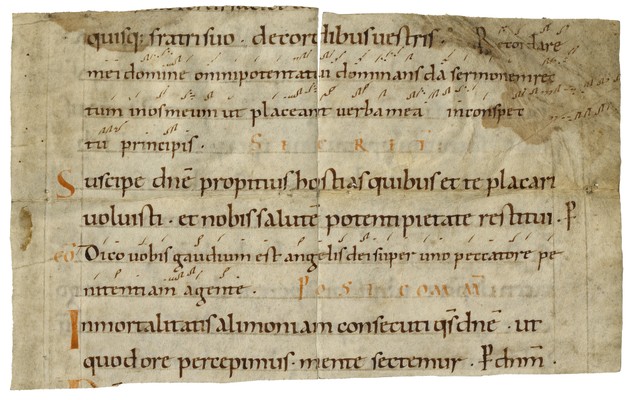 quisq: fratri suo · de cordibus vestris · Recordare
mei domine omnipotentatui dominans da sermonem rec
tum in os meum ut placeant verba mea in conspec
tu principis · SECRET
Suscipe dñe propitius hostias quibus et te placari
voluisti · et nobis salutē potenti pietate restitui · P
cō Dico vobis gaudium est angelis dei super uno peccatore pe
nitentiam agente · POSTCOMM
Inmortalitatis alimoniam consecuti qs dnē · ut
quod ore percepimus · mente sectemur · P dnm̄ ·